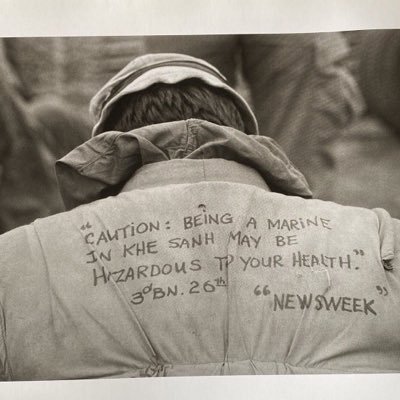 "CAUTION: BEING A MARINE
IN KHE SANH MAY BE
HAZARDOUS TO YOUR HEALTH."
3d BN. 26th
"NEWSWEEK"